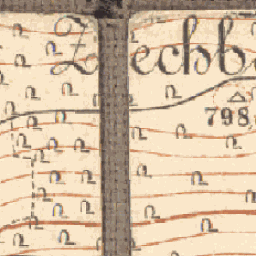 Zechb
798,